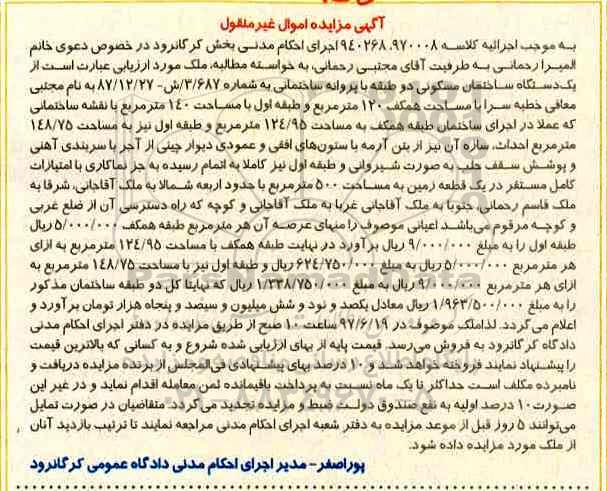 آگهی مزایده اموال غیرمنقول
به موجب اجرائیه کلاسه ۹۴۰۲۶۸،۹۷۰۰۰۸ اجرای احکام مدنی بخش کرگانرود در خصوص دعوی خانم
المیرا رحمانی به طرفیت آقای مجتبی رحمانی، به خواسته مطالبه، ملک مورد ارزیابی عبارت است از
یک‌دستگاه ساختمان مسکونی دو طبقه با پروانه ساختمانی به شماره ۳/۶۸۷/ش- ۸۷/۱۲/۲۷ به نام مجتبی
معافی خطبه سرا با مساحت همکف ۱۲۰ مترمربع و طبقه اول با مساحت ۱۴۰ مترمربع با نقشه ساختمانی
که عملا در اجرای ساختمان طبقه همکف به مساحت ۱۲۴/۹۵ مترمربع و طبقه اول نیز به مساحت ۱۴۸/۷۵
مترمربع احداث، سازه آن نیز از بتن آرمه با ستون‌های افقی و عمودی دیوار چینی از آجر با سربندی آهنی
و پوشش سقف حلب به صورت شیروانی و طبقه اول نیز کاملا به اتمام رسیده به جز نماکاری با امتیازات
کامل مستقر در یک قطعه زمین به مساحت ۵۰۰ مترمربع با حدود اربعه شمالا به ملک آقاجانی، شرقا به
ملک قاسم رحمانی، جنوبا به ملک آقاجانی غربا به ملک آقاجانی و کوچه که راه دسترسی آن از ضلع غربی
و کوچه مرقوم می‌باشد اعیانی موصوف را منهای عرصه آن هر مترمربع طبقه همکف ۵/۰۰۰/۰۰۰ ریال
طبقه اول را به مبلغ ۹/۰۰۰/۰۰۰ ریال برآورد در نهایت طبقه همکف با مساحت ۱۲۴/۹۵ مترمربع به ازای
هر مترمربع ۵/۰۰۰/۰۰۰ ریال به مبلغ ۶۲۴/۷۵۰/۰۰۰ ریال و طبقه اول نیز با مساحت ۱۴۸/۷۵ مترمربع به
ازای هر مترمربع ۹/۰۰۰/۰۰۰ ریال به مبلغ ۱/۳۳۸/۷۵۰/۰۰۰ ریال که نهایتا کل دو طبقه ساختمان مذکور
را به مبلغ ۱/۹۶۳/۵۰۰/۰۰۰ ریال معادل یکصد و نود و شش میلیون و سیصد و پنجاه هزار تومان برآورد و
اعلام می‌گردد. لذاملک موصوف در ۹۷/۶/۱۹ ساعت ۱۰ صبح از طریق مزایده در دفتر اجرای احکام مدنی
دادگاه کرگانرود به فروش می‌رسد. قیمت پایه از بهای ارزیابی شده شروع و به کسانی که بالاترین قیمت
را پیشنهاد نمایند فروخته خواهد شد و ۱۰ درصد بهای پیشنهادی فی‌المجلس از برنده مزایده دریافت و
نامبرده مکلف است حداکثر تا یک ماه نسبت به پرداخت باقیمانده ثمن معامله اقدام نماید و در غیر این
صورت ۱۰ درصد اولیه به نفع صندوق دولت ضبط و مزایده تجدید می‌گردد. متقاضیان در صورت تمایل
می‌توانند ۵ روز قبل از موعد مزایده به دفتر شعبه اجرای احکام مدنی مراجعه نمایند تا ترتیب بازدید آنان
از ملک مورد مزایده داده شود.
پوراصغر- مدیر اجرای احکام مدنی دادگاه عمومی کرگانرود